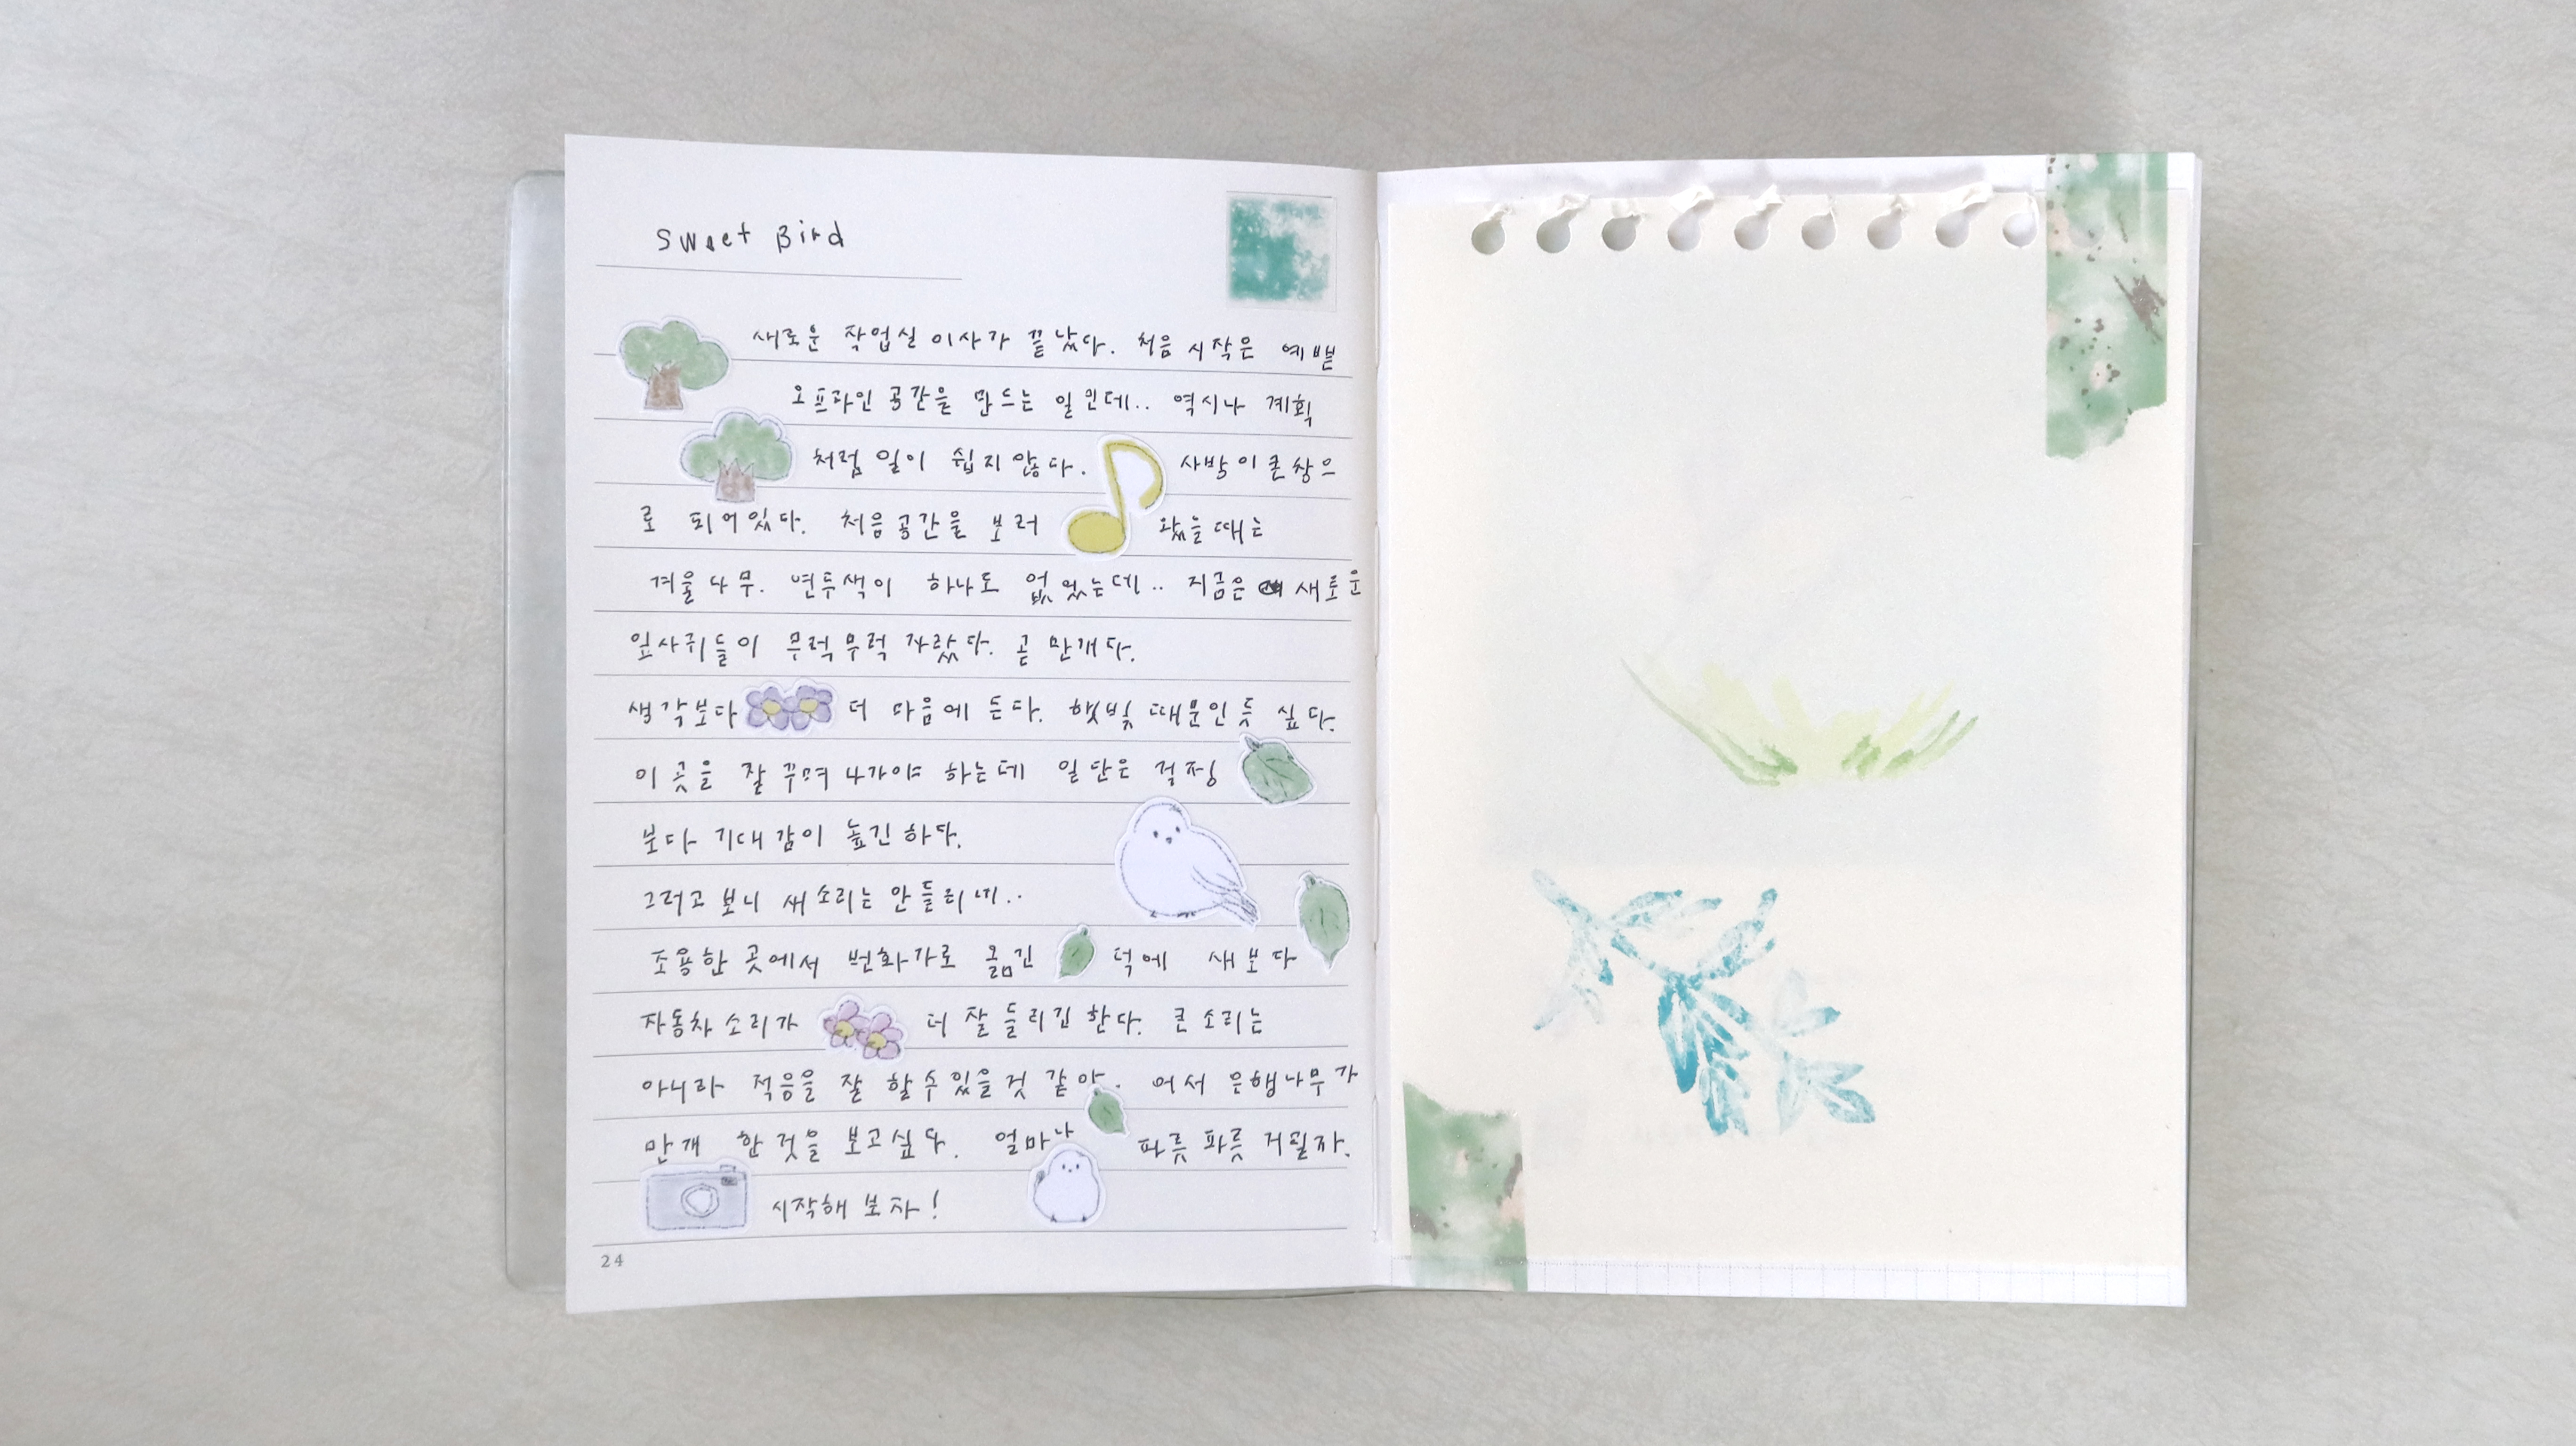 Sweet Bird
새로운 작업실 이사가 끝났다. 처음 시작은 예쁜
오프라인 공간을 만드는 일인데.. 역시나 계획
처럼 일이 쉽지 않다. 사방이 큰 창으
로 되어있다. 처음 공간을 보러 왔을 때는
겨울나무. 연두색이 하나도 없었는데.. 지금은 새로운
잎사귀들이 무럭무럭 자랐다. 곧 만개다.
생각보다 더 마음에 든다. 햇빛 때문인 듯 싶다.
이 곳을 잘 꾸며 나가야 하는데 일단은 걱정
보다 기대감이 높긴 하다.
그러고 보니 새소리는 안 들리네..
조용한 곳에서 번화가로 옮긴 덕에 새보다
자동차 소리가 더 잘 들리긴 한다. 큰 소리는
아니라 적응을 잘 할 수 있을 것 같아. 어서 은행나무가
만개 한 것을 보고싶다. 얼마나 파릇파릇 거릴까.
시작해 보자!
24